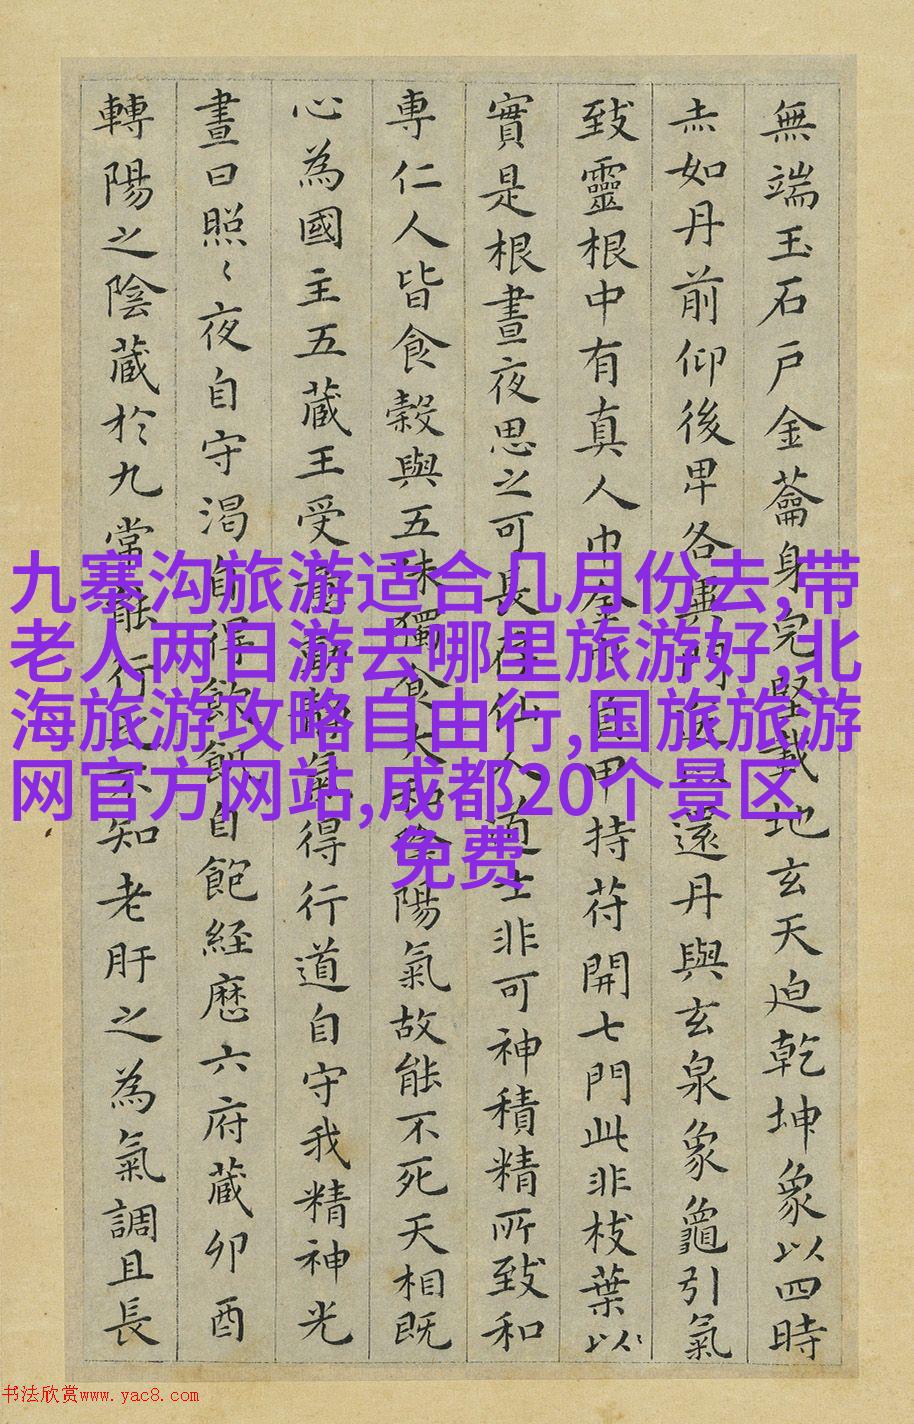 無端玉石戶金蘥身完堅載地玄天迫乾坤象以四時
赤如丹前仰後卑各異門送以還丹與玄泉象龜引氣
致靈根中有真人巾金巾負甲持苻開七門此非枝葉以
實是根晝夜思之可長存仙人道士非可神積精所致和
專仁人皆食穀與五味獨食太和陰陽氣故能不死天相既
心為國主五藏王受意動靜氣得行道自守我精神光
晝日照〻夜自守渴自得飲飢自飽経歷六府藏卯酉
轉陽之陰藏於九常能行之不知老肝之為氣調且長
九寨沟旅游适合几月份去,带
老人两日游去哪里旅游好,北
海旅游攻略自由行,国旅旅游
网官方网站,成都20个景区
免费
书法欣赏www.yac8.com